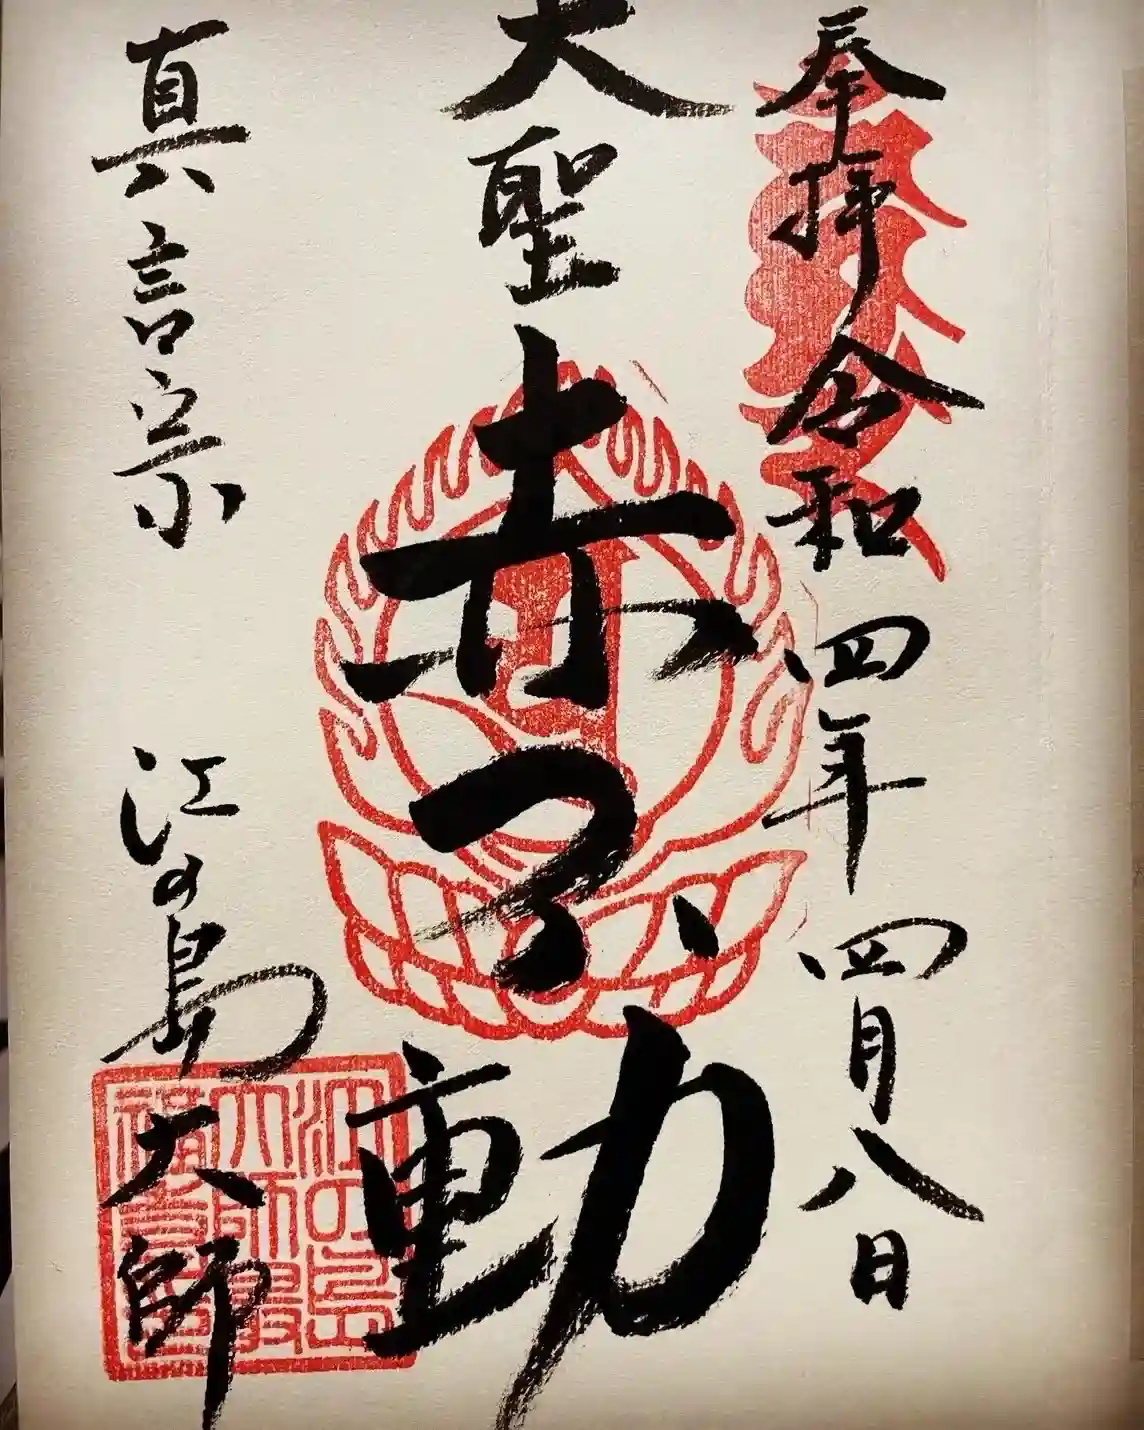 奉拝 令和四年四月八日
大聖赤不動
真言宗 江の島大師